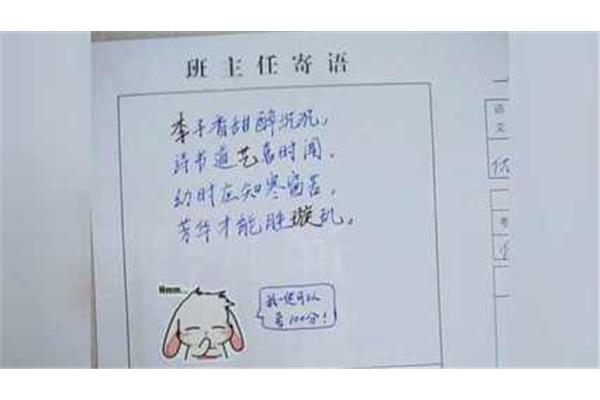 班主任寄语
李子香甜醉沉沉，
诗书道艺名时闻.
幼时应知寒窗苦，
芳华才能胜璇玑。
Hmm...
我一定可以
考100分！
语
文
优
考